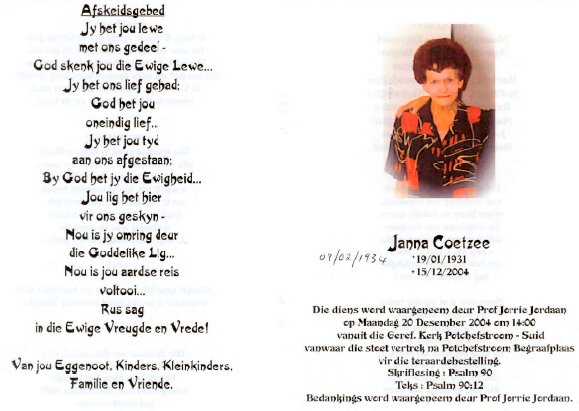 Afskeidsgebed
Jy het jou lewe
met ons gedeel -
God skenk jou die Ewige Lewe...
Jy het ons lief gehad;
God het jou
oneindig lief...
Jy het jou tyd
aan ons afgestaan;
By God het jy die Ewigheid...
Jou lig het hier
vir ons geskyn -
Nou is jy omring deur
die Goddelike Lig...
Nou is jou aardse reis
voltooi...
Rus sag
in die Ewige Vreugde en Vrede!
Van jou Eggenoot, Kinders, Kleinkinders,
Familie en Vriende.
Janna Coetzee
09/08/1934
*19/01/1931
+15/12/2004
Die diens word waargeneem deur Prof Jorrie Jordaan
op Maandag 20 Desember 2004 om 14:00
vanuit die Geref. Kerk Potchefstroom - Suid
vanwaar die stoet vertrek na Potchefstroom; Begraafplaas
vir die teraardebestelling.
Skriflesing : Psalm 90
Teks : Psalm 90:12
Bedankings word waargeneem deur Prof Jorrie Jordaan.